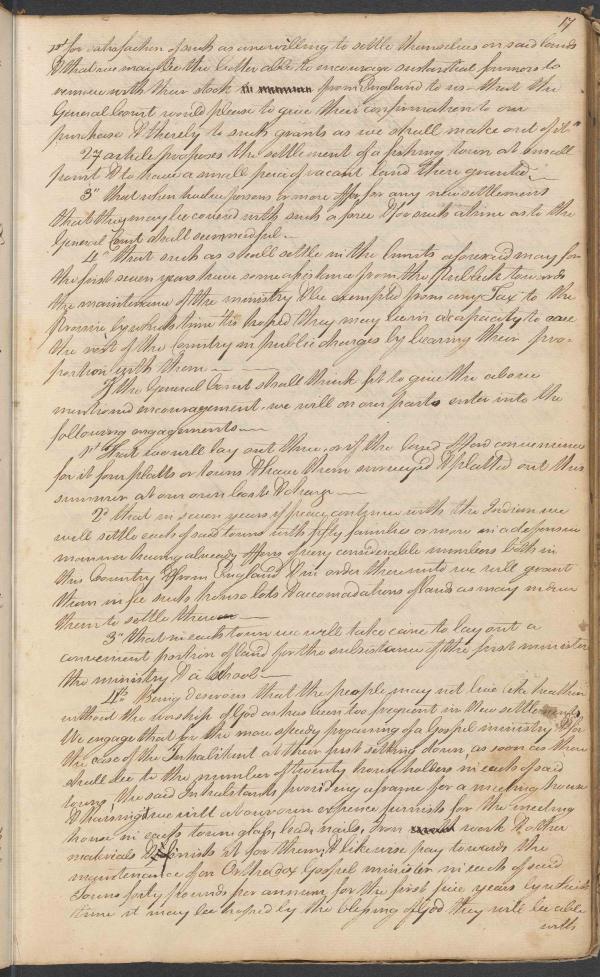 17
1st for satisfaction of such as are willing to settle themselves on said lands
& that we may be the better able to encourage substantial farmers to
remove with their stock from England to us - that the
General Court would please to give their confirmation to our
purchase & thereby to such grants as we shall make out of it"
2d article proposes the settlement of a fishing town at Small
point & to have a small piece of vacant land there granted
3" that when twelve persons or more offer for any new settlement
that they may be covered with such a force & for such a time as to the
General Court shall seem needful -
4" that such as shall settle in the limits aforesaid may for
the first seven years have some assistance from the publick towards
the maintenance of the ministry & be exempted from any Tax to the
Province by which time tis hoped they may be in a capacity to ease
the rest of the Country in public charges by bearing their pro-
portion with them
If the General Court shall think fit to give the above
mentioned encouragement we will on our parts enter into the
following engagements
1st That we will lay out three, or if the land afford convenience
for it four platts or towns & have them surveyed & platted out this
summer at our own cost & charge
2d that in seven years if peace continue with the Indians we
will settle each of said towns with fifty families or more in a defensive
manner having already offers of very considerable numbers both in
this Country & from England & in order thereunto we will grant
them in fee such house lots & accomadations of land as may induce
them to settle there
3" that in each town we will take care to lay out a
convenient portion of land for the subsistance of the first minister
the ministry & a school -
4th Being desirous that the people may not live like heathen
without the worship of God as has been too frequent in New settlements
We engage that for the more speedy procuring of a Gospel ministry & for
the ease of the Inhabitant at their first settling down, as soon as there
shall be to the number of twenty house holders in each of said
towns, the said Inhabitants providing a frame for a meeting house
& raising it we will at our own expence furnish for the meeting
house in each town glass, lead, nails, Iron work & other
materials & finish it for them, & likewise pay towards the
maintenance of an Orthodox Gospel minister in each of said
Towns forty pounds per annum for the first five years by which
time it may be hoped by the blessing of God they will be able
with